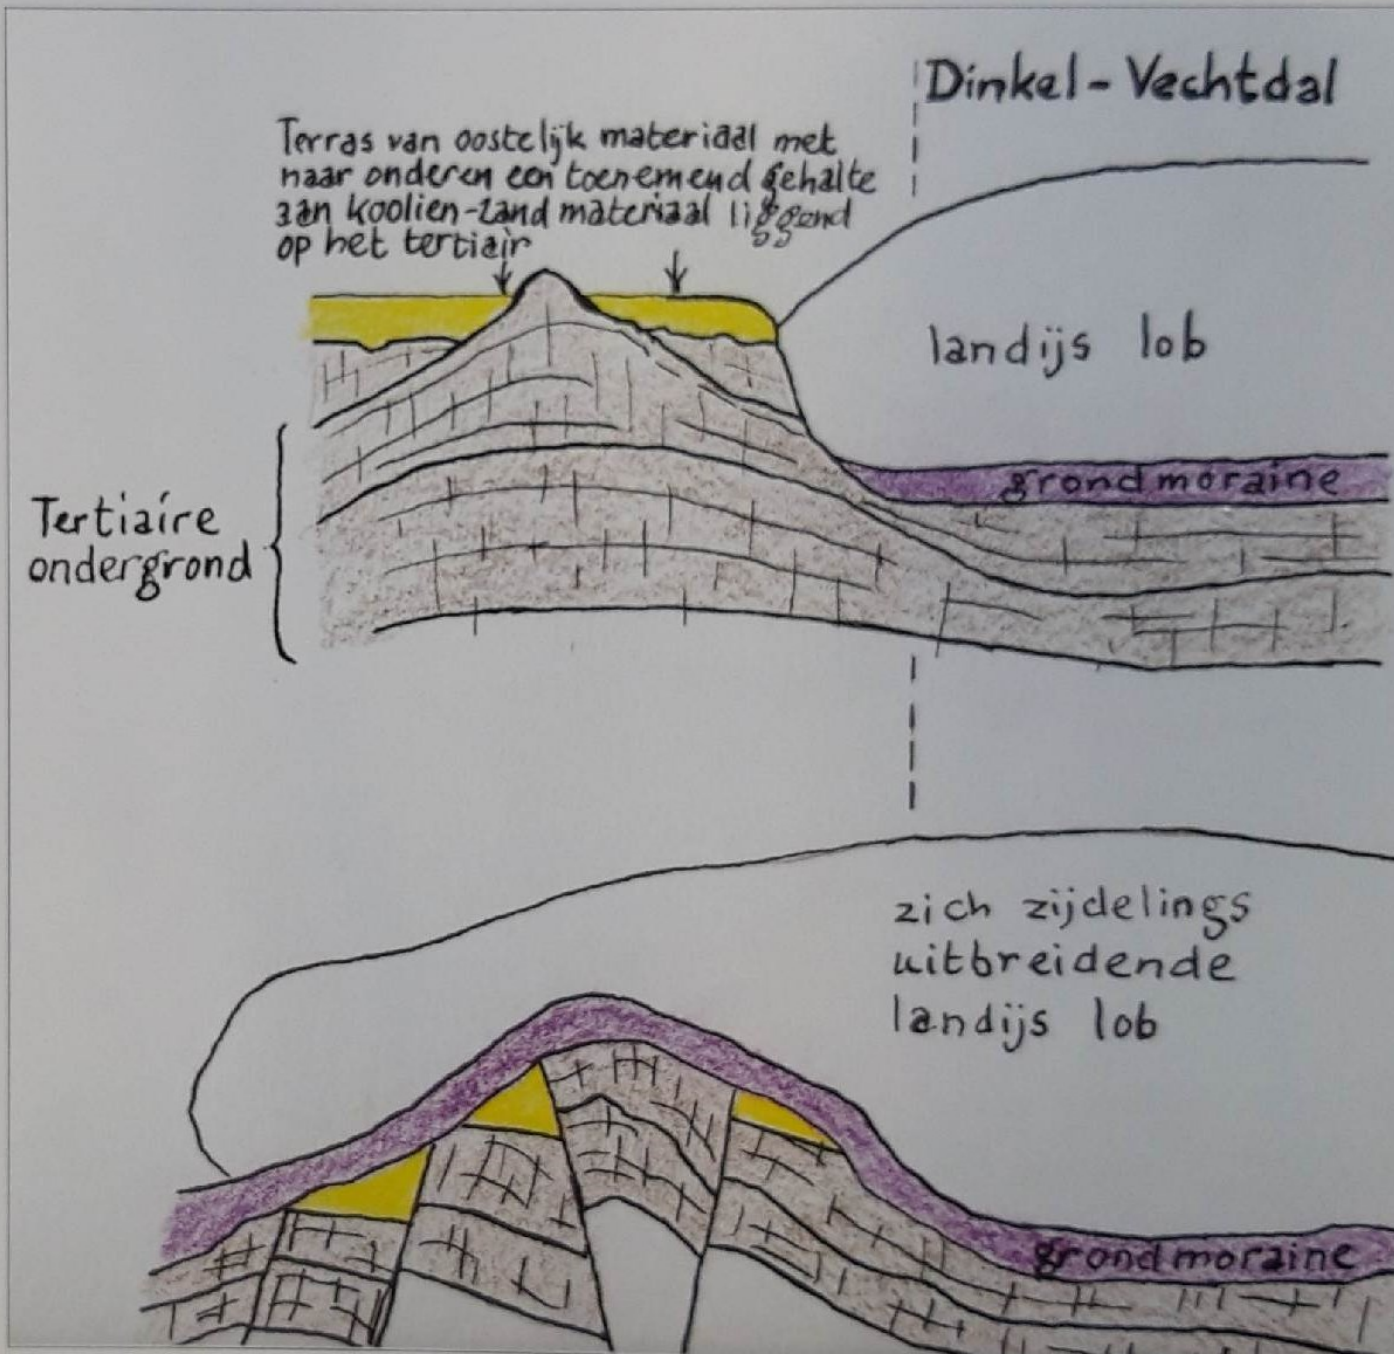 Dinkel - Vechtdal
Terras van oostelijk materiaal met
naar onderen een toenemend gehalte
aan koolien-zand materiaal liggend
op het tertiair
landijs lob
grondmoraine
Tertiaire
ondergrond
zich zijdelings
uitbreidende
landijs lob
grondmoraine